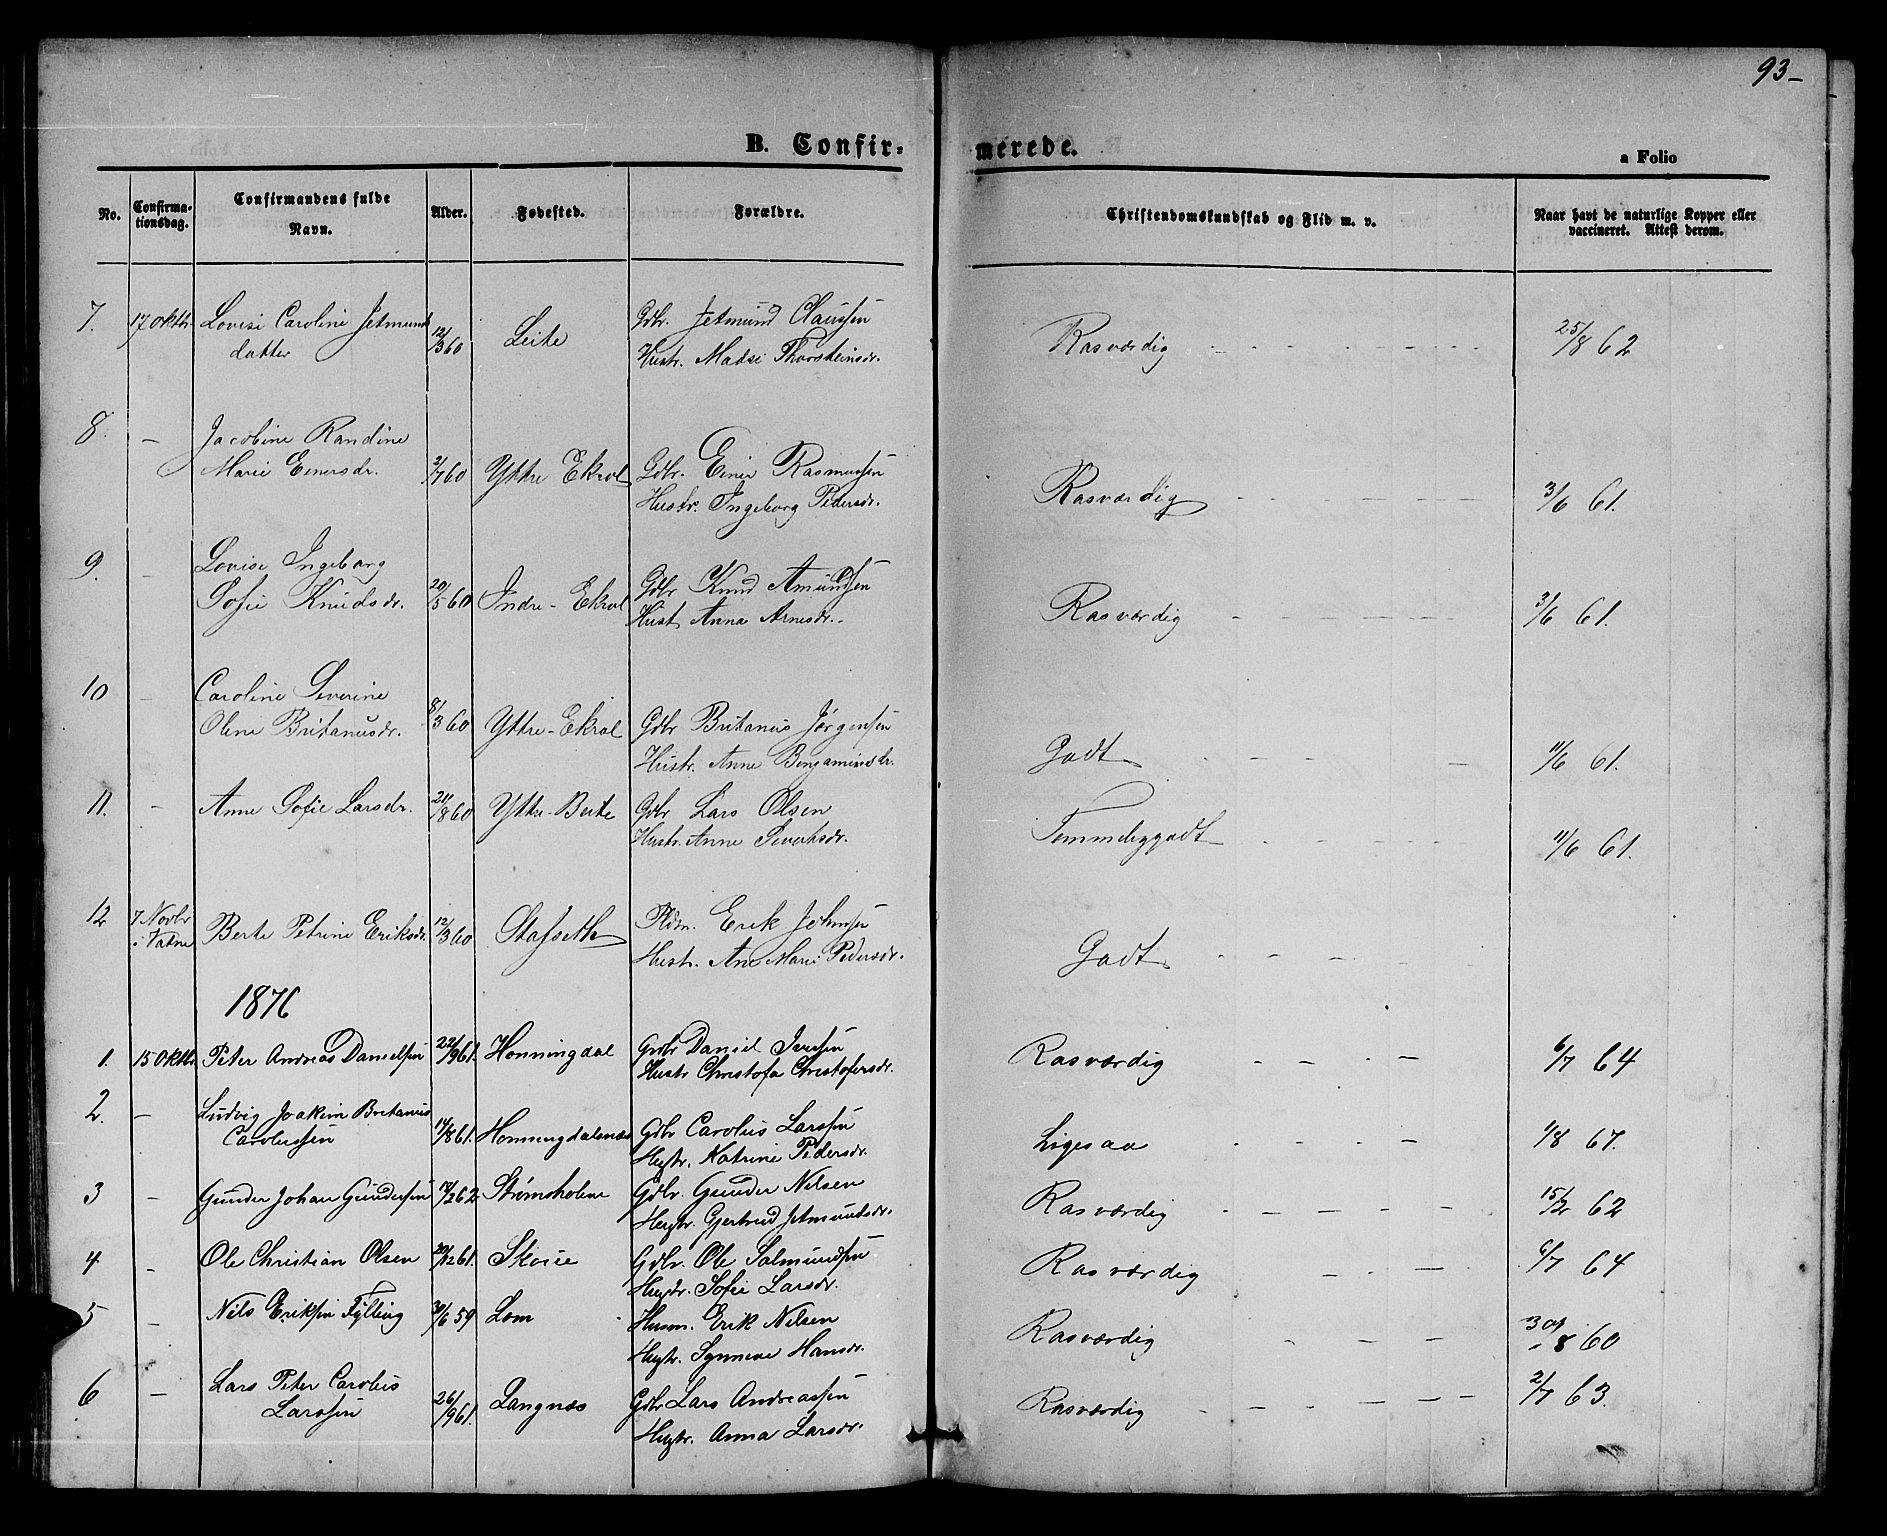 93-
B. Confir-
merede.
a Folio
No.
Confirma-
tionsdag.
Confirmandens fulde
Navn.
Alder.
Fødested.
Forældre.
Christendomskundskab og Flid m. v.
Naar havt de naturlige Kopper eller
vaccineret. Attest derom.
7. 17 Oktbr. Lovise Caroline Jetmunds
datter 12/3 60 Leite
Gdbr. Jetmund Claussen
Hustr. Madsi Thorsteinsdr.
Rasværdig 25/8 62
8. - Jacobine Randine
Marie Einersdr. 2/7 60 Yttre Ekrol
Gdbr. Einer Rasmussen
Hustr. Ingeborg Pedersdr.
Rasværdig 3/6 61.
9. - Lovise Ingeborg
Sofie Knudsdr. 20/5 60 Indre-Ekrol
Gdbr Knud Amundsen
Hust Anna Arnesdr.
Rasværdig 3/6 61.
10 - Caroline Severine
Oline Britanusdr. 8/3 60 Yttre-Ekrol
Gdbr Britanus Jørgensen
Hustr. Anne Benjaminsdr.
Godt 11/6 61.
11. - Anne Sofie Larsdr. 21/8 60 Yttre-Beite
Gdbr Lars Olsen
Hustr. Anne Sivertsdr.
Temmeliggodt 11/6 61.
12 7 Novbr
i Vatne Berte Petrine Eriksdr. 12/3 60 Stafseth
Pldm. Erik Johnsen
Hustr. Ane Marie Pedersdr.
Godt
1876
1. 15 Oktbr Peter Andreas Danielsen 22/9 61. Honningdal
Gdbr Daniel Iversen
Hustr Christofa Christofersdr.
Rasværdig 6/7 64
2. - Ludvig Joakim Britanus
Carolussen 14/8 61. Honningdalsnæs
Gdbr Carolus Larssen
Hustr. Katrine Pedersdr.
Ligesaa 1/8 67.
3 - Gunder Johan Gundersen 18/2 62. Strømsholm
Gdbr. Gunder Nilsen
Hustr. Gjertrud Jetmundsdr.
Rasværdig 15/2 62
4 - Ole Christian Olsen 20/12 61. Skoie
Gdbr. Ole Salmundsen
Hustr. Sofie Larsdr.
Rasværdig 6/7 64
5 - Nils Eriksen Fylling 30/6 59 Lom
Husm. Erik Nilsen
Hustr. Synneve Hansdr.
Rasværdig 30/8 60
6 - Lars Peter Carolus
Larssen 26/9 61. Langnæs
Gdbr Lars Andreassen
Hustr. Anna Larsdr.
Rasværdig 2/7 63.